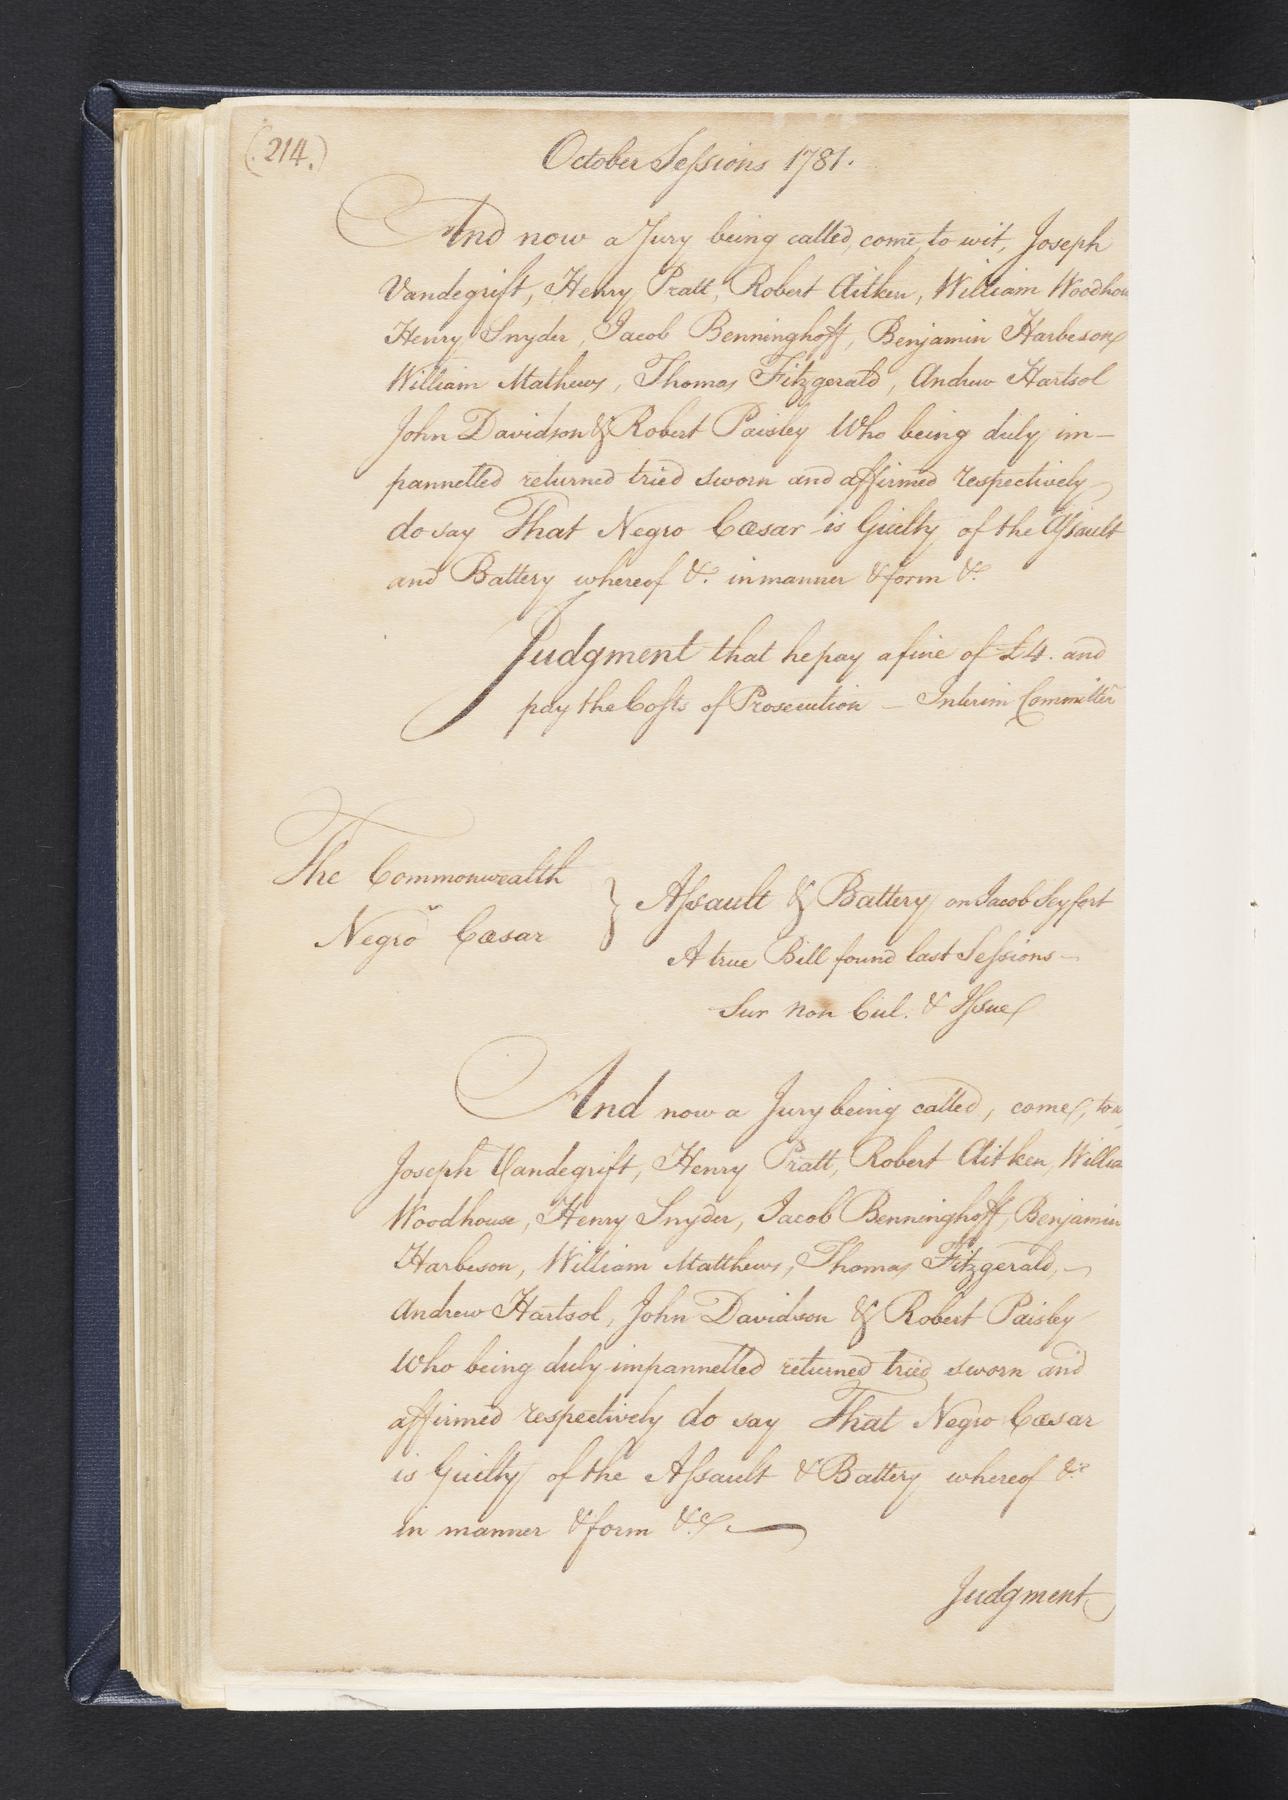 (214.)
October Seſsions 1781.
And now a Jury being called, come, to wit, Joseph
Vandegrift, Henry Pratt, Robert Aitken, William Woodhou
Henry Snyder, Jacob Benninghoff, Benjamin Harbeson
William Mathews, Thomas Fitzgerald, Andrew Hartsol
John Davidson & Robert Paisley Who being duly im-
pannelled returned tried sworn and affirmed respectively
do say That Negro Cæsar is Guilty of the Aſsault
and Battery whereof &c. in manner & form &c.
Judgment that he pay a fine of £4. and
pay the Coſts of Prosecution - Interim Committr
The Commonwealth
v
Negro Cæsar
} Aſsault & Battery on Jacob Seyfert
A true Bill found last Seſsions -
Sur non Cul. & Iſsue
And now a Jury being called, come, to w
Joseph Vandegrift, Henry Pratt, Robert Aitken, Willia
Woodhouse, Henry Snyder, Jacob Benninghoff, Benjamin
Harbeson, William Matthews, Thomas Fitzgerald, -
Andrew Hartsol, John Davidson & Robert Paisley
Who being duly impannelled returned tried sworn and
affirmed respectively do say That Negro Cæsar
is Guilty of the Aſsault & Battery whereof &c
in manner & form &c. —
Judgment